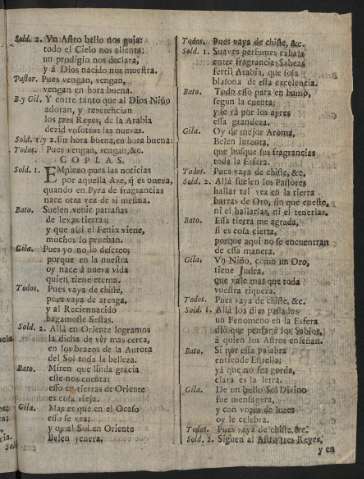 Sold. 2. Vn Astro bello nos guia:
todo el Cielo nos alienta:
un prodigio nos declara,
y á Dios nacido nos muestra.
Pastor. Pues vengan, vengan,
vengan en hora buena.
B. y Gil. Y entre tanto que al Dios Niño
adoran, y reverencian
los tres Reyes, de la Arabia
dezid vosotros las nuevas.
Sold. 1. y 2. En hora buena, en hora buena:
Todos. Pues vengan, vengan, &c.
COPLAS.
Sold. 1. EMpiezo pues las noticias
por aquella Ave, si es nueva,
quando en Pyra de fragrancias
nace otra vez de si mesma.
Bato. Suelen venir patrañas
de lexas tierras,
y que aisi el Fenix viene,
muchos lo prueban.
Gila. Pues yo no lo desecho,
porque en la nuestra
oy nace á nueva vida
quien tiene eterna.
Todos. Pues vaya de chiste,
pues vaya de arenga,
y al Reciennacido
hagamosle fiestas.
Sold. 2. Allá en Oriente logramos
la dicha de vér mas cerca,
en los brazos de la Aurora
del Sol toda la belleza.
Bato. Miren que linda gracia
esse nos cuenta:
esso en tierras de Oriente
es cosa vieja.
Gila. Mas es que en el Ocaso
esso se vea;
y oy al Sol en Oriente
Belen venera.
Todos. Pues vaya de chiste, &c.
Sold. 1. Suaves perfumes exhala
entre fragrancias Sabeas
fertil Arabia, que sola
blasona de essa excelencia.
Bato. Todo esso para en humo,
segun la cuenta;
y se vá por los ayres
essa grandeza.
Gila. Oy de mejor Aroma,
Belen inventa,
que busque sus fragrancias
toda la Esfera.
Todos. Pues vaya de chiste, &c.
Sold. 2. Allá suelen los Pastores
hallar tal vez en la tierra
barras de Oro, sin que cueste,
ni el hallarlas, ni el tenerlas.
Bato. Essa tierra me agrada,
si es cosa cierta,
porque aqui no se encuentran
de essa manera.
Gila. Vn Niño, como un Oro,
tiene Judea,
que vale mas que toda
vuestra riqueza.
Todos. Pues vaya de chiste, &c.
Sold. 1. Allá los dias passados
un Fenomeno en la Esfera
dió que pensar á los Sabios,
á quien los Astros enseñan.
Bato. Si por essa palabra
entiende Estrella;
yá que no sea gorda,
clara es la letra.
Gila. De un bello Sol Divino
fue mensagera,
y con vozes de luzes
oy le celebra.
Todos. Pues vaya de chiste, &c.
Sold. 2. Siguen al Astro tres Reyes,
y en